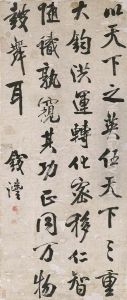 以天下之英任天下之重
大钧洪運轉化密移仁智
随識孰窺其功正同万物
鼓舞耳
錢澧